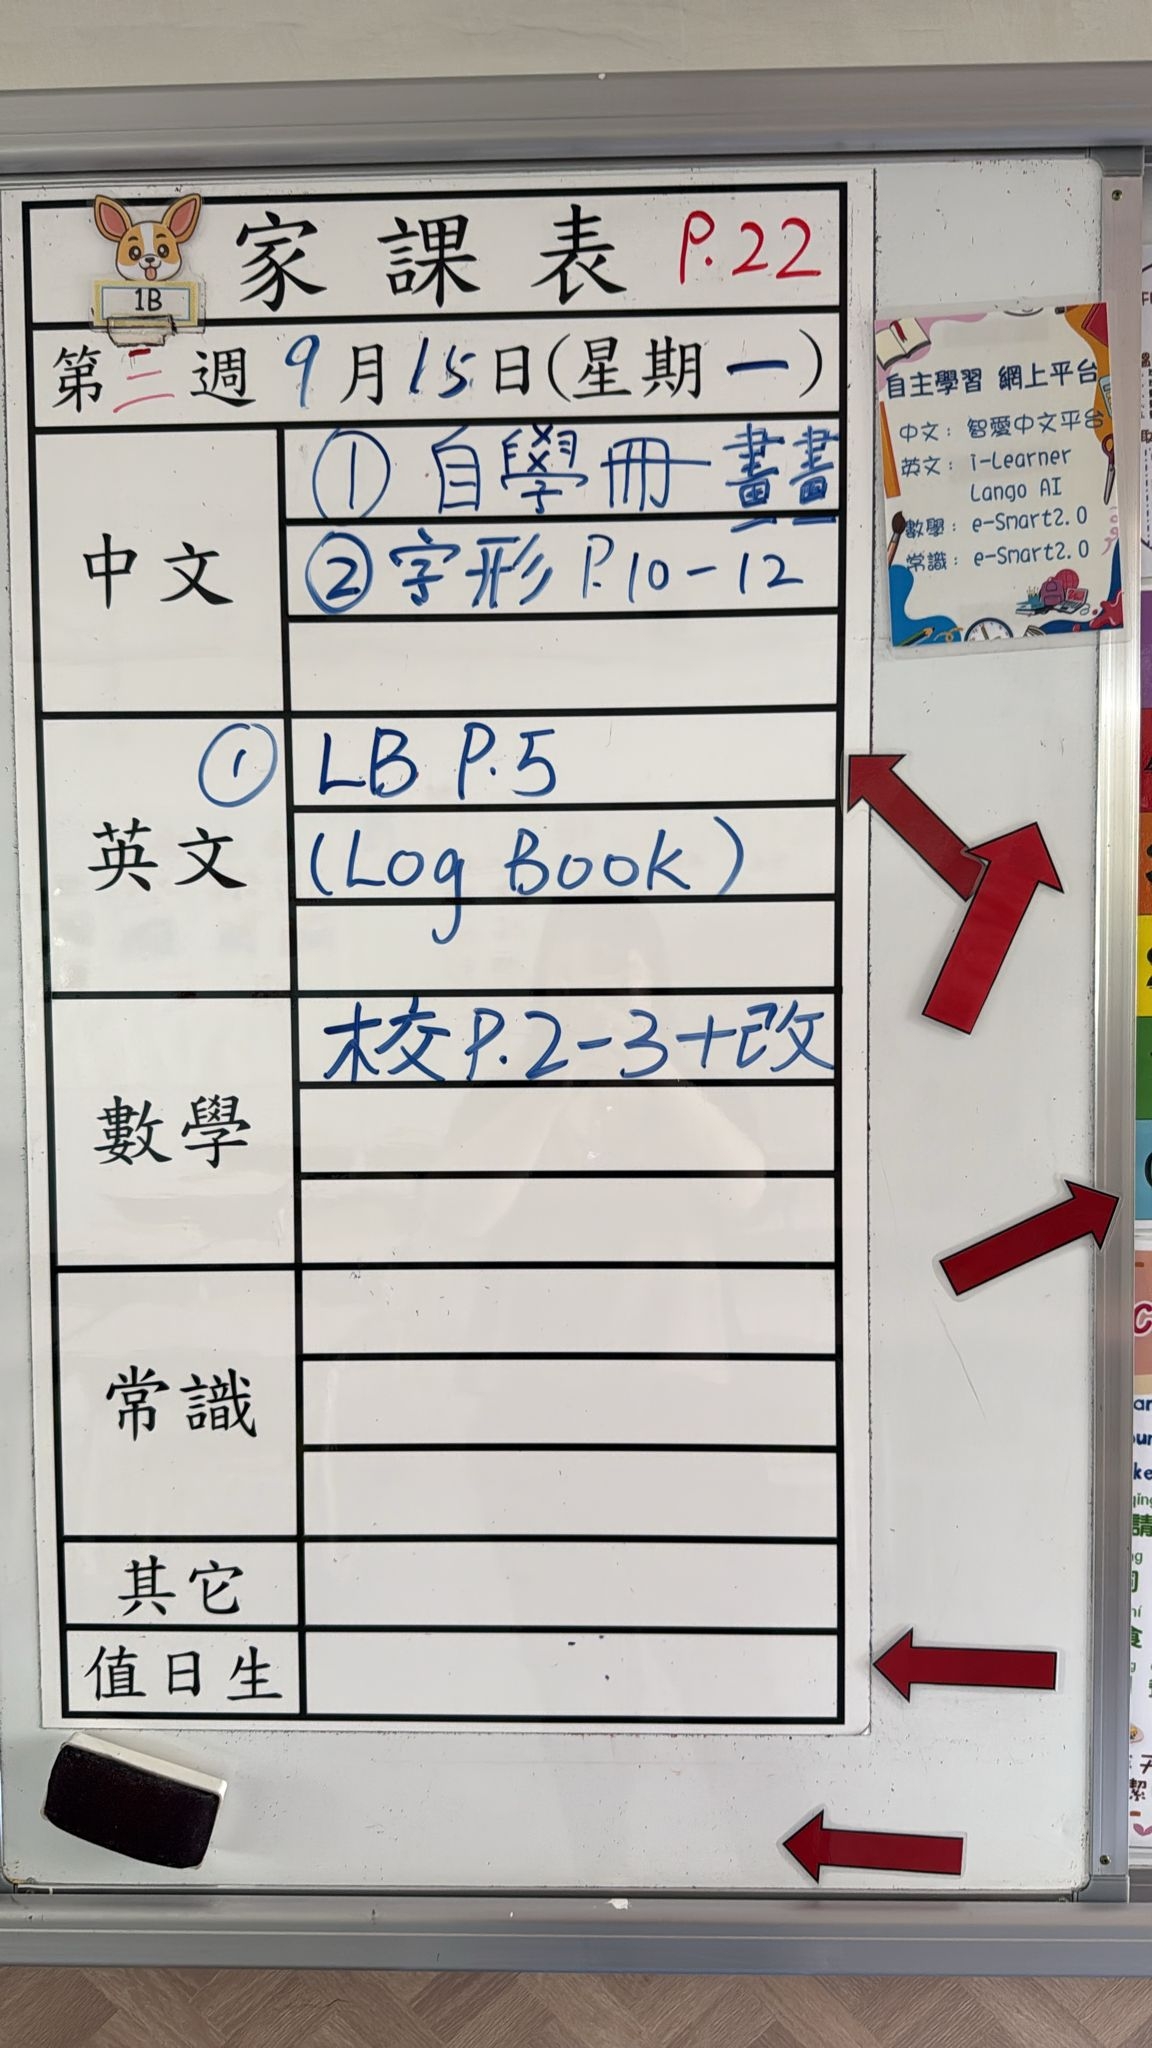 家課表 P.22
1B
第三週 9月15日(星期一)
中文
① 自學冊 畫畫
② 字形 P.10-12
英文
① LB P.5
(Log Book)
數學
校 P.2-3+改
常識
其它
值日生
自主學習 網上平台
中文：智愛中文平台
英文：i-Learner
Lango AI
數學：e-Smart2.0
常識：e-Smart2.0